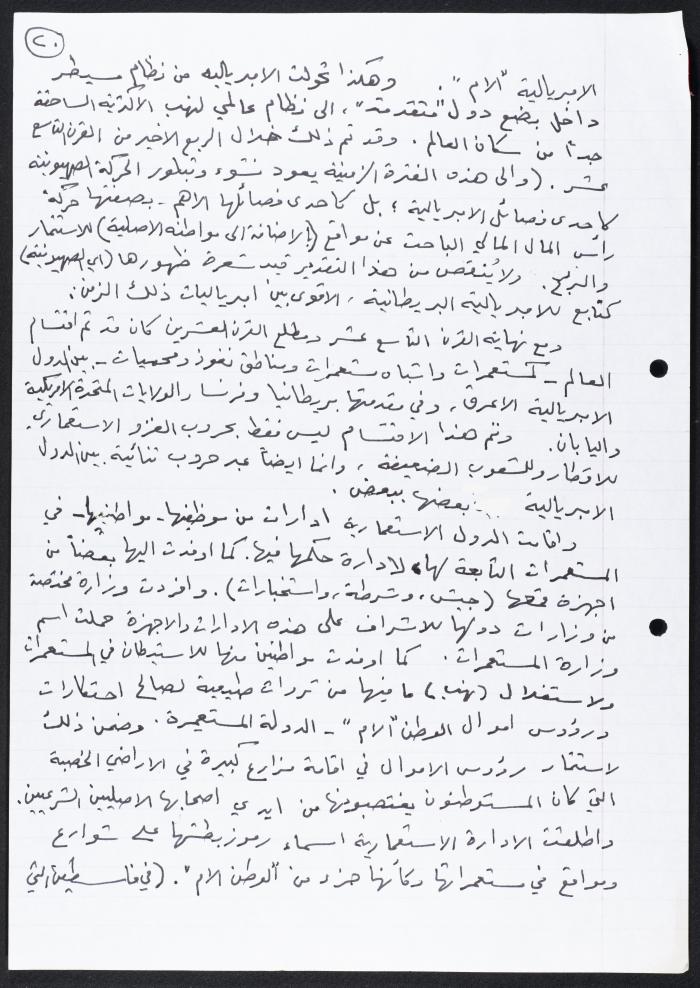 ٢٠
الامبريالية "الام". وهكذا تحولت الامبريالية من نظام مسيطر
داخل بضع دول "متقدمة"، الى نظام عالمي لنهب الاكثرية الساحقة
جداً من سكان العالم. وقد تم ذلك خلال الربع الاخير من القرن التاسع
عشر. (والى هذه الفترة الزمنية يعود نشوء وتبلور الحركة الصهيونية
كاحدى فصائل الامبريالية؛ بل كاحدى فصائلها الاهم - بصفتها حركة
رأس المال المالي الباحث عن مواقع (بالاضافة الى مواطنه الاصلية) للاستثمار
والربح. ولا يُنتقص من هذا التقدير قيد شعرة ظهورها (اي الصهيونية)
كتابع للامبريالية البريطانية، الاقوى بين امبرياليات ذلك الزمن.
ومع نهاية القرن التاسع عشر ومطلع القرن العشرين كان قد تم اقتسام
العالم - كمستعمرات واشباه مستعمرات ومناطق نفوذ ومحميات - بين الدول
الامبريالية الاعرق، وفي مقدمتها بريطانيا وفرنسا والولايات المتحدة الامريكية
واليابان. وتم هذا الاقتسام ليس فقط بحروب الغزو الاستعماري
للاقطار وللشعوب الضعيفة، وانما ايضاً عبر حروب ثنائية بين الدول
الامبريالية بعضها ببعض.
واقامت الدول الاستعمارية ادارات من موظفيها - مواطنيها - في
المستعمرات التابعة لها، لادارة حكمها فيها. كما اوفدت اليها بعضاً من
اجهزة قمعها (جيش، وشرطة، واستخبارات). وافردت وزارة مختصة
من وزارات دولها للاشراف على هذه الادارات والاجهزة حملت اسم
وزارة المستعمرات. كما اوفدت مواطنين منها للاستيطان في المستعمرات
ولاستغلال (نهب) ما فيها من ثروات طبيعية لصالح احتكارات
ورؤوس اموال الوطن "الام" - الدولة المستعمِرة. وضمن ذلك
لاستثمار رؤوس الاموال في اقامة مزارع كبيرة في الاراضي الخصبة
التي كان المستوطنون يغتصبونها من ايدي اصحابها الاصليين الشرعيين.
واطلقت الادارة الاستعمارية اسماء رموز بطشها على شوارع
ومواقع في مستعمراتها وكأنها جزء من "الوطن الام". (في فلسطين التي